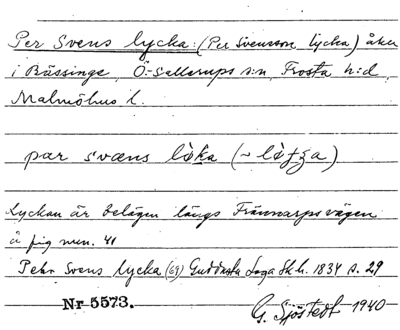 Per Svens lycka: (Per Svensson lycka) åker
i Bässinge, Ö. Sallerups s:n, Frosta h:d,
Malmöhus l.
par svæns
Lyckan är belägen längs Frännarpsvägen
å fig num. 41
Pehr Svens lycka (69) Skh. 1834 s. 29
Nr 5573. G. Sjöstedt 1940